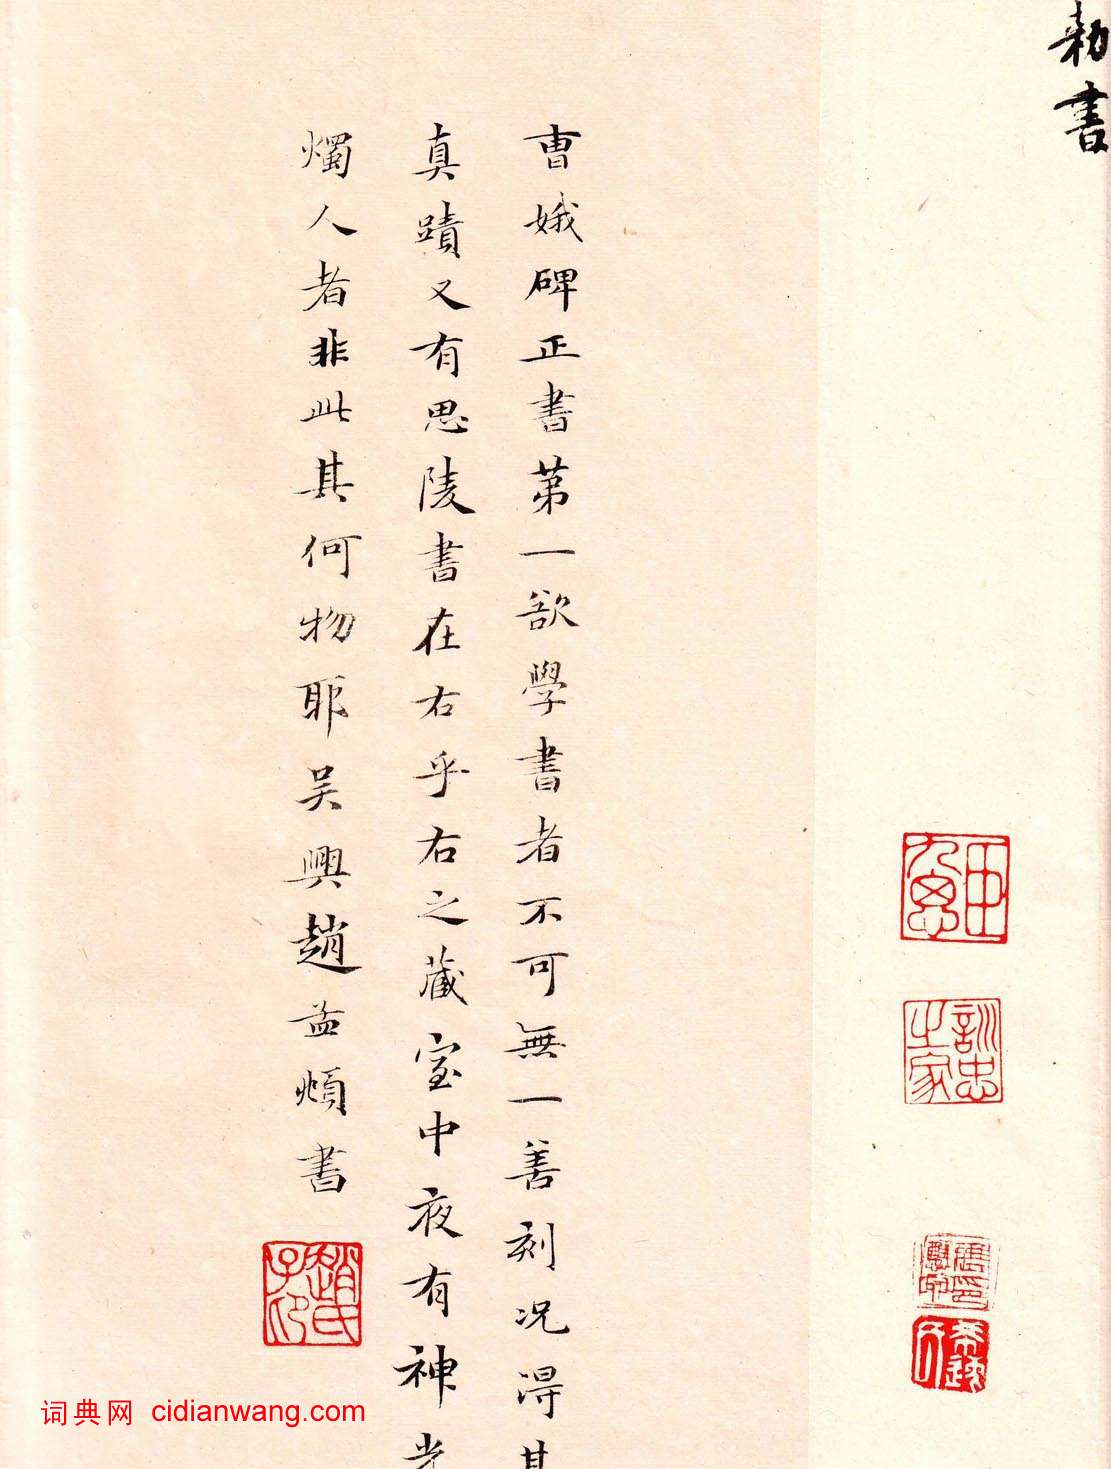 勑書
曺娥碑正書第一欲學書者不可無一善刻况淂其
真蹟又有思陵書在右乎右之藏室中夜有神光
燭人者非此其何物耶吴興趙孟頫書
趙氏子印
訓忠之家
词典网 cidianwang.com